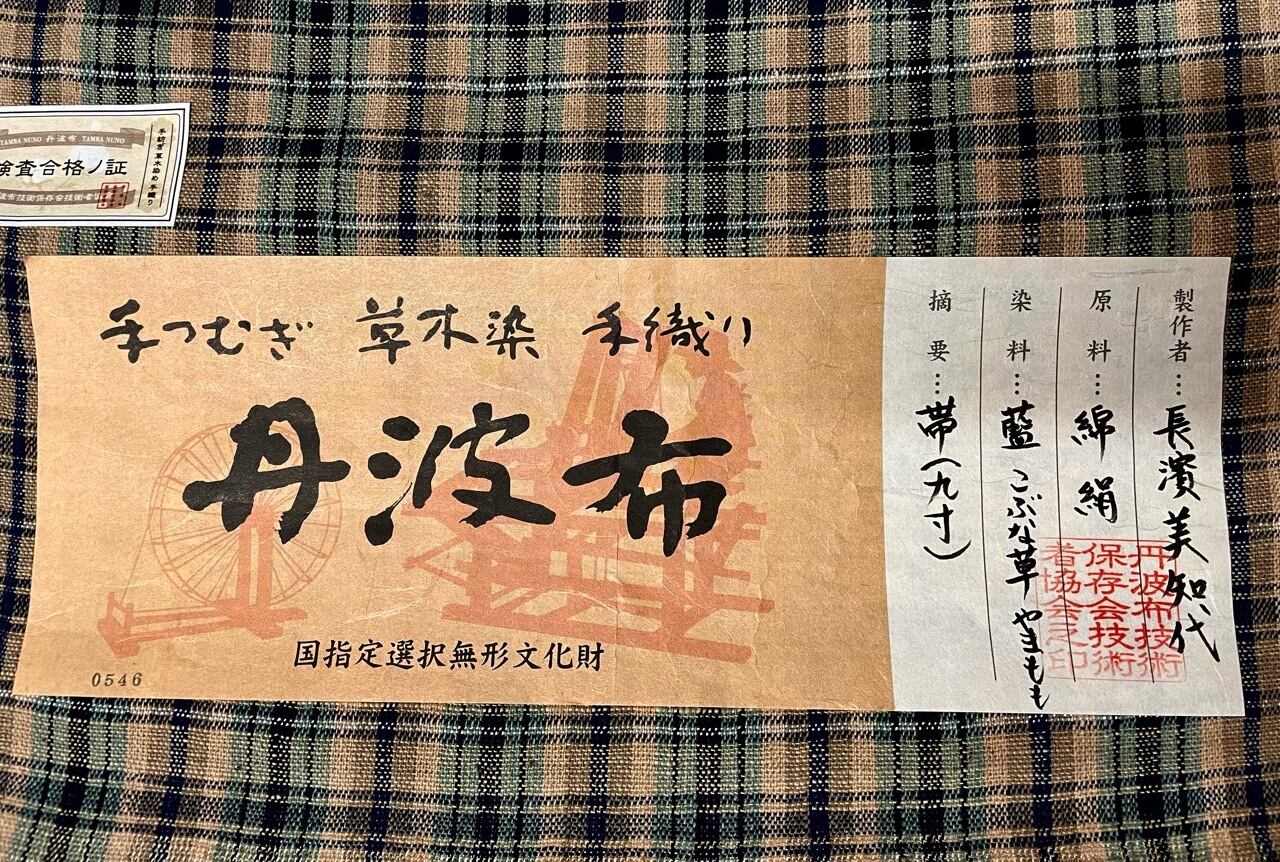 TAMBA NUNO 丹波布 TAMBA NUNO
検査合格ノ証
波布技術保存会技術者
手紡ぎ 草木染め 手織り
手つむぎ 草木染 手織り
丹波布
国指定選択無形文化財
0546
製作者…長濱美知代
原料…綿 絹
染料…藍 こぶな草 やまもも
摘要…帯(九寸)
丹波布技術
保存会技術
者協会之印